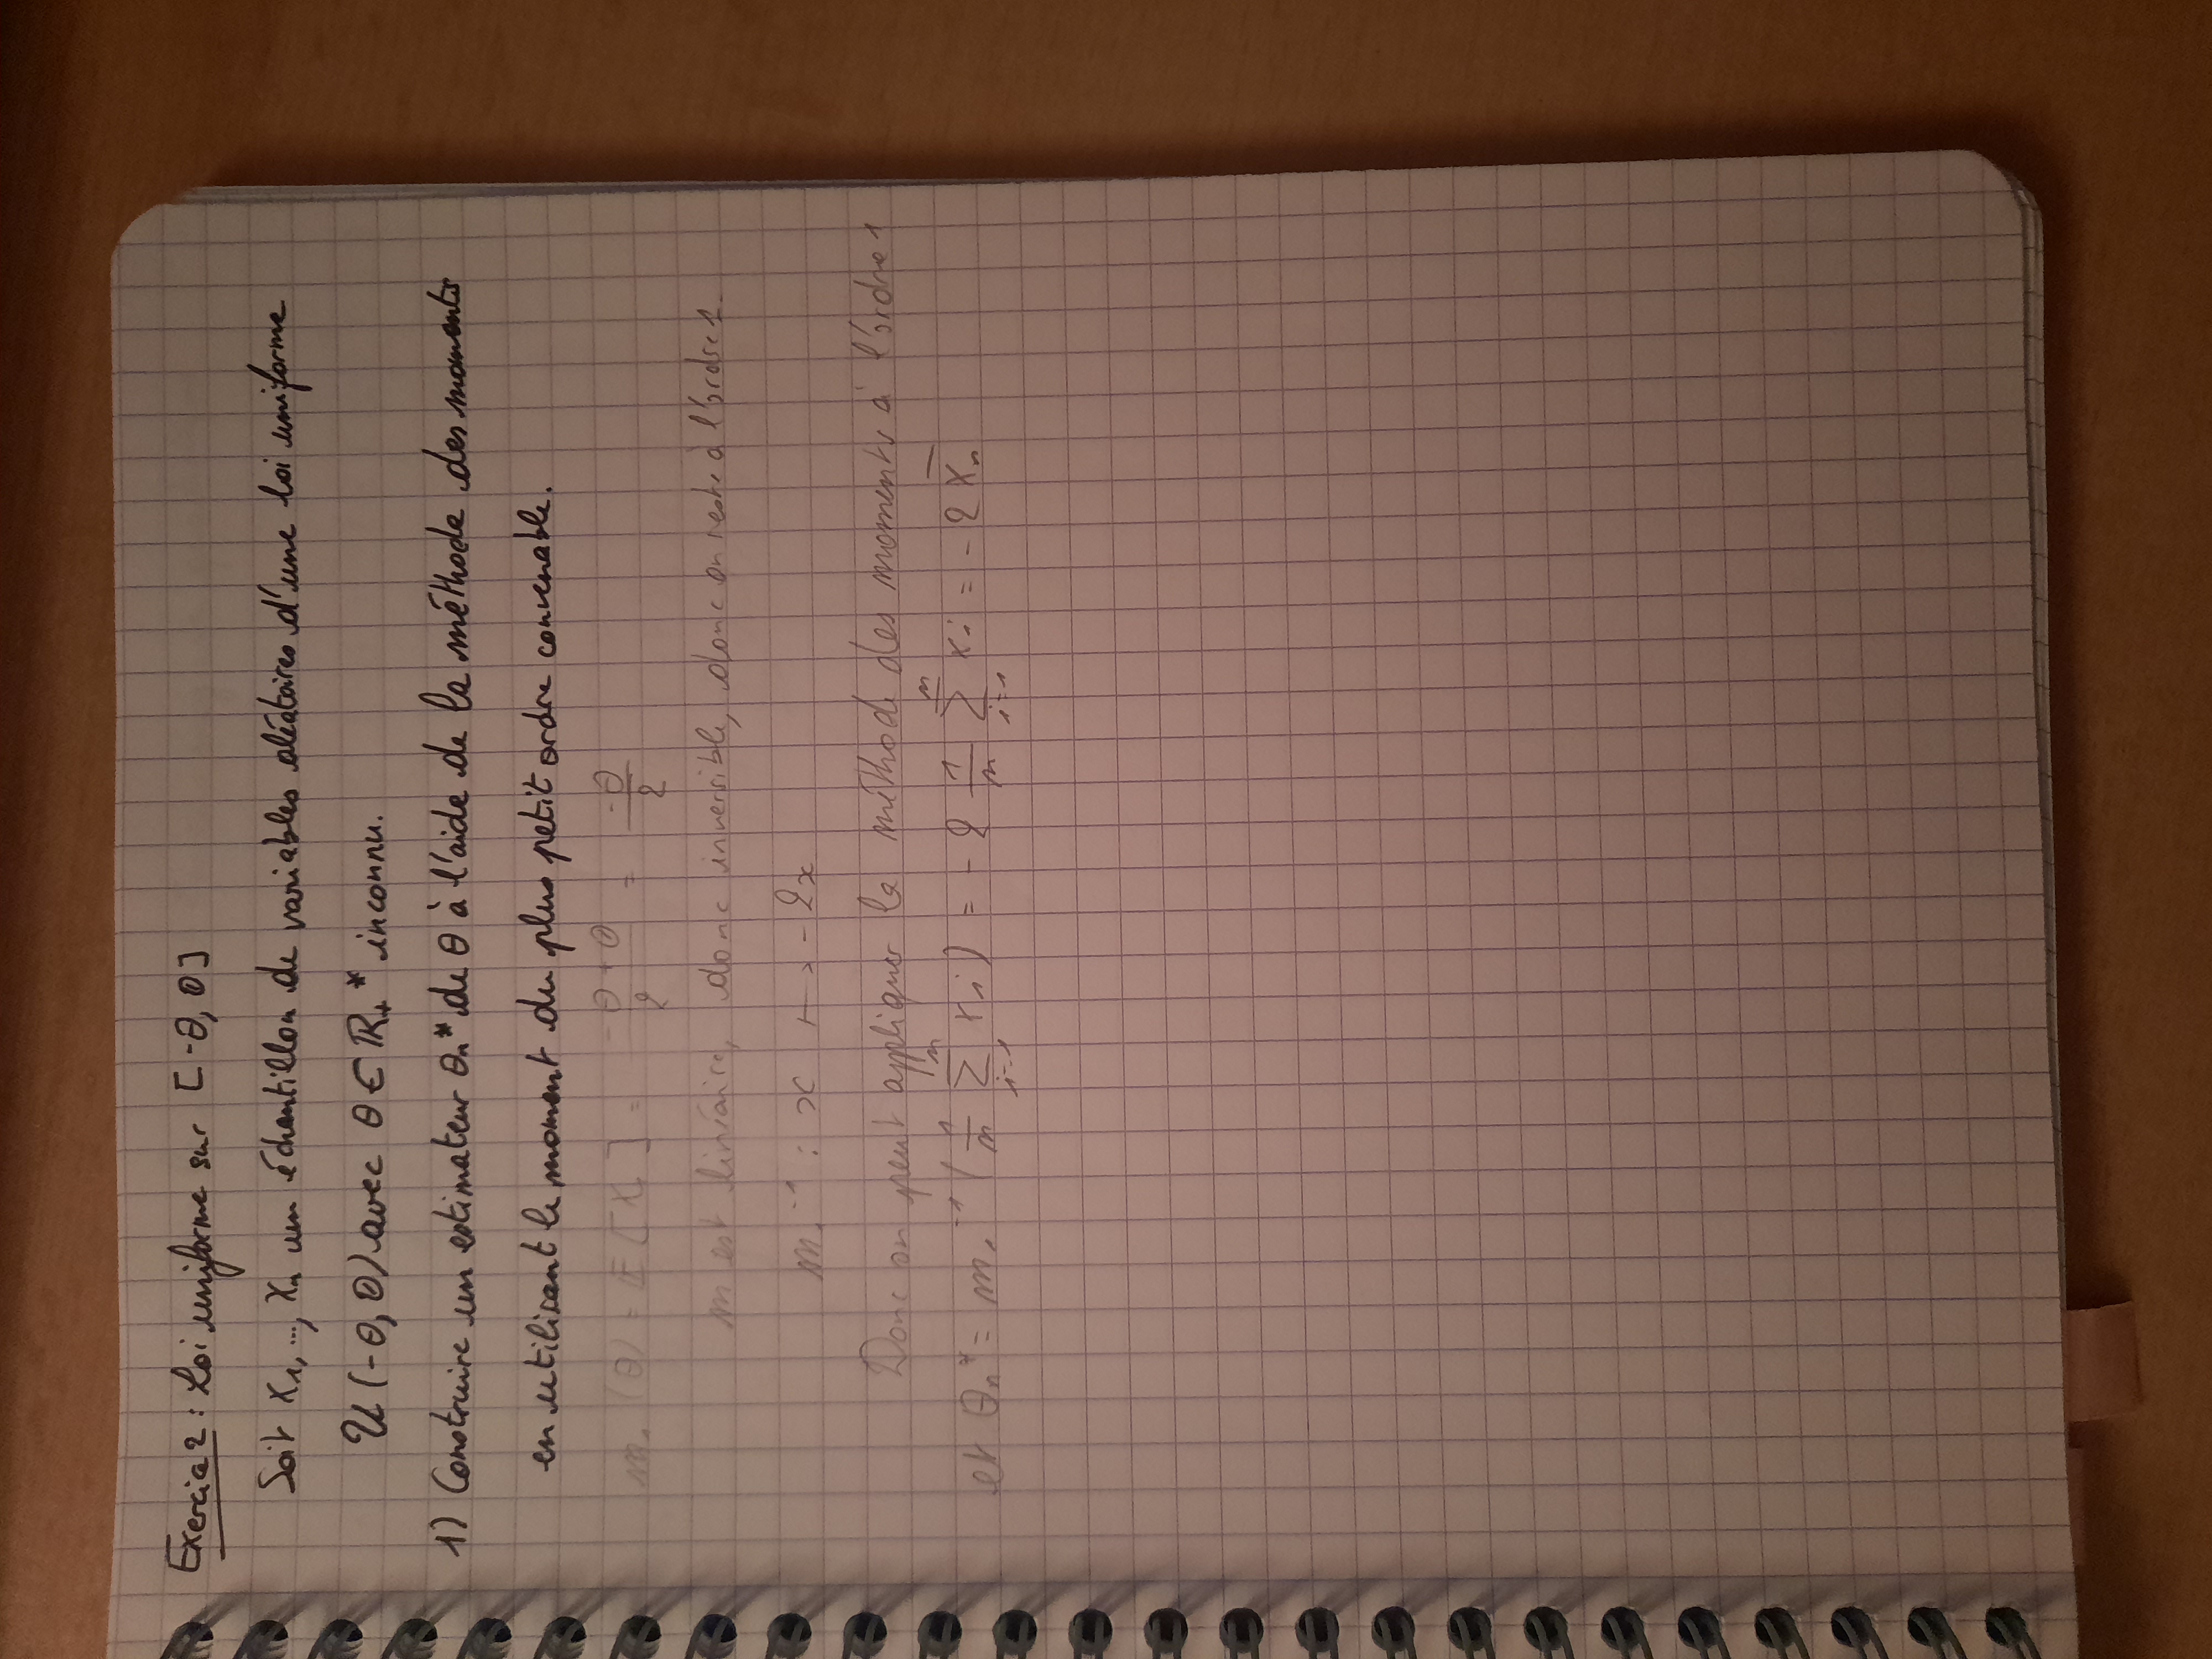 Exercice 2 : Loi uniforme sur [-θ, θ]
Soit X₁, ..., Xₙ un échantillon de variables aléatoires d'une loi uniforme
U(-θ, θ) avec θ ∈ ℝ₊* inconnu.
1) Construire un estimateur θₙ* de θ à l'aide de la méthode des moments
en utilisant le moment du plus petit ordre convenable.
m₁(θ) = E[X₁] = (-θ + θ)/2 = -θ/2
m est linéaire, donc inversible, donc on reste à l'ordre 1.
m₁⁻¹ : x ↦ -2x
Donc on peut appliquer la méthode des moments à l'ordre 1
et θₙ* = m₁⁻¹(1/n ∑ᵢ₌₁ⁿ Xᵢ) = -2 1/n ∑ᵢ₌₁ⁿ Xᵢ = -2 X̄ₙ